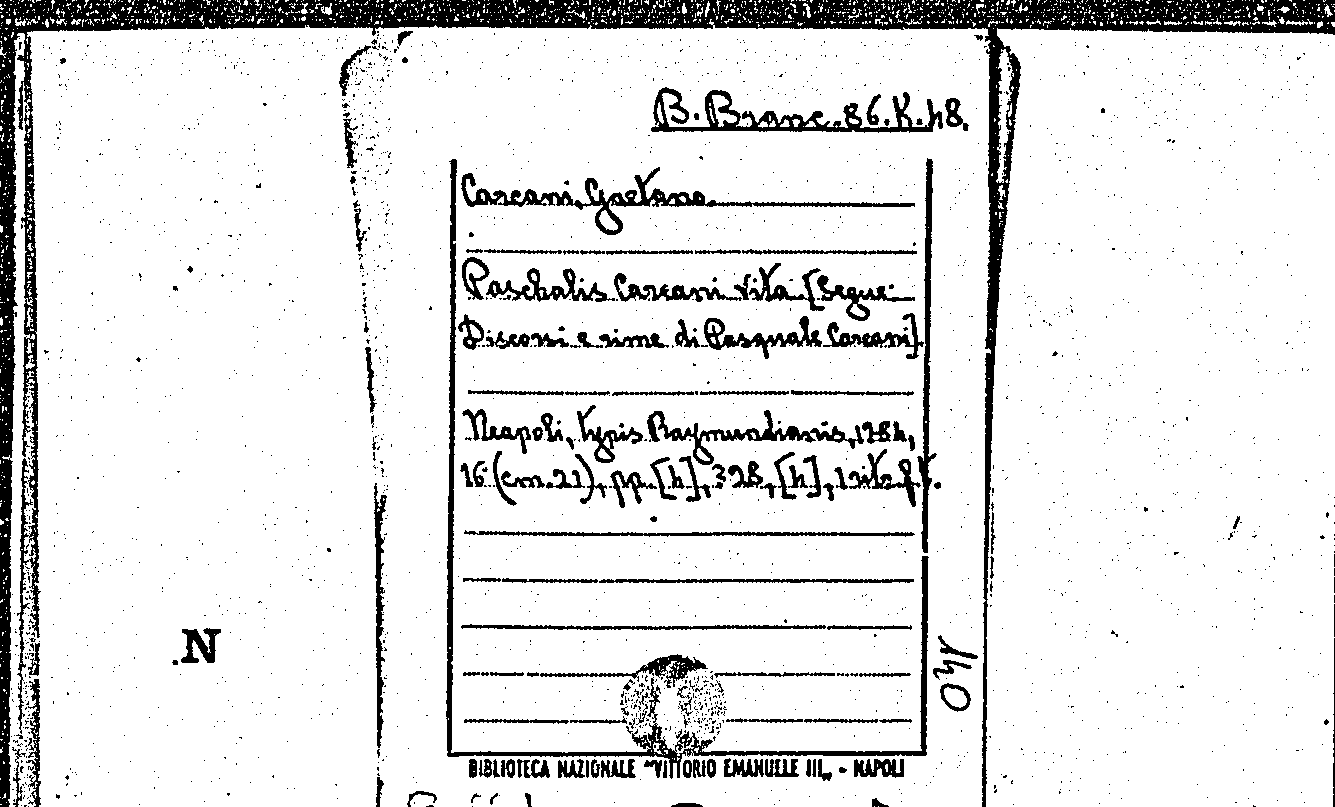 B. Branc. 86. K. 48.
Carcani, Gaetano.
Paschalis Carcani vita [Segue:
Discorsi e rime di Pasquale Carcani].
Neapoli, typis Raymundianis, 1784,
16° (cm. 21), pp. [4], 328, [4], 1 ritr. f.t.
N
140
BIBLIOTECA NAZIONALE "VITTORIO EMANUELE III„ - NAPOLI